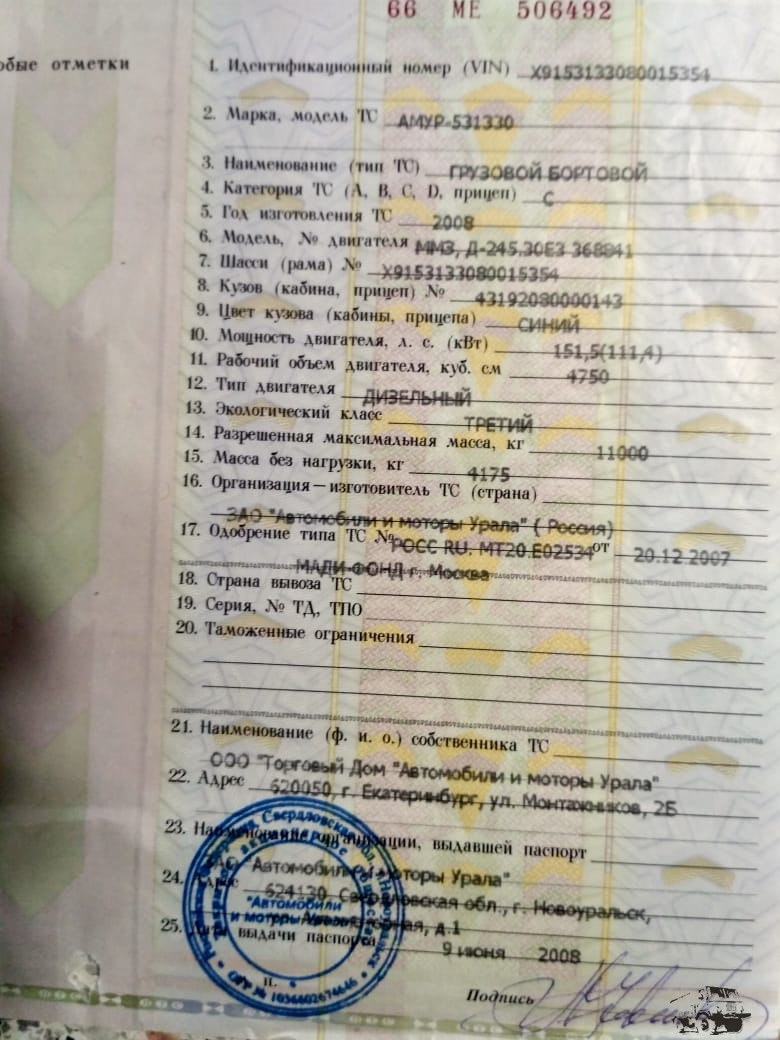 66 МЕ 506492
обые отметки
1. Идентификационный номер (VIN) X9153133080015354
2. Марка, модель ТС АМУР-531330
3. Наименование (тип ТС) ГРУЗОВОЙ БОРТОВОЙ
4. Категория ТС (А, В, С, D, прицеп) С
5. Год изготовления ТС 2008
6. Модель, № двигателя ММЗ, Д-245.30Е3 368841
7. Шасси (рама) № X9153133080015354
8. Кузов (кабина, прицеп) № 43192080000143
9. Цвет кузова (кабины, прицепа) СИНИЙ
10. Мощность двигателя, л. с. (кВт) 151,5(111,4)
11. Рабочий объем двигателя, куб. см 4750
12. Тип двигателя ДИЗЕЛЬНЫЙ
13. Экологический класс ТРЕТИЙ
14. Разрешенная максимальная масса, кг 11000
15. Масса без нагрузки, кг 4175
16. Организация—изготовитель ТС (страна)
ЗАО "Автомобили и моторы Урала" ( Россия)
17. Одобрение типа ТС № РОСС RU. МТ20.Е02534 от 20.12.2007
МАДИ-ФОНД г. Москва
18. Страна вывоза ТС
19. Серия, № ТД, ТПО
20. Таможенные ограничения
21. Наименование (ф. и. о.) собственника ТС
ООО "Торговый Дом "Автомобили и моторы Урала"
22. Адрес 620050, г. Екатеринбург, ул. Монтажников, 2Б
23. Наименование организации, выдавшей паспорт
ЗАО "Автомобили и моторы Урала"
24. Адрес 624130, Свердловская обл., г. Новоуральск,
д.1
25. Дата выдачи паспорта 9 июня 2008
"Автомобили
и моторы Урала"
ОГРН № 1036602674646
Подпись